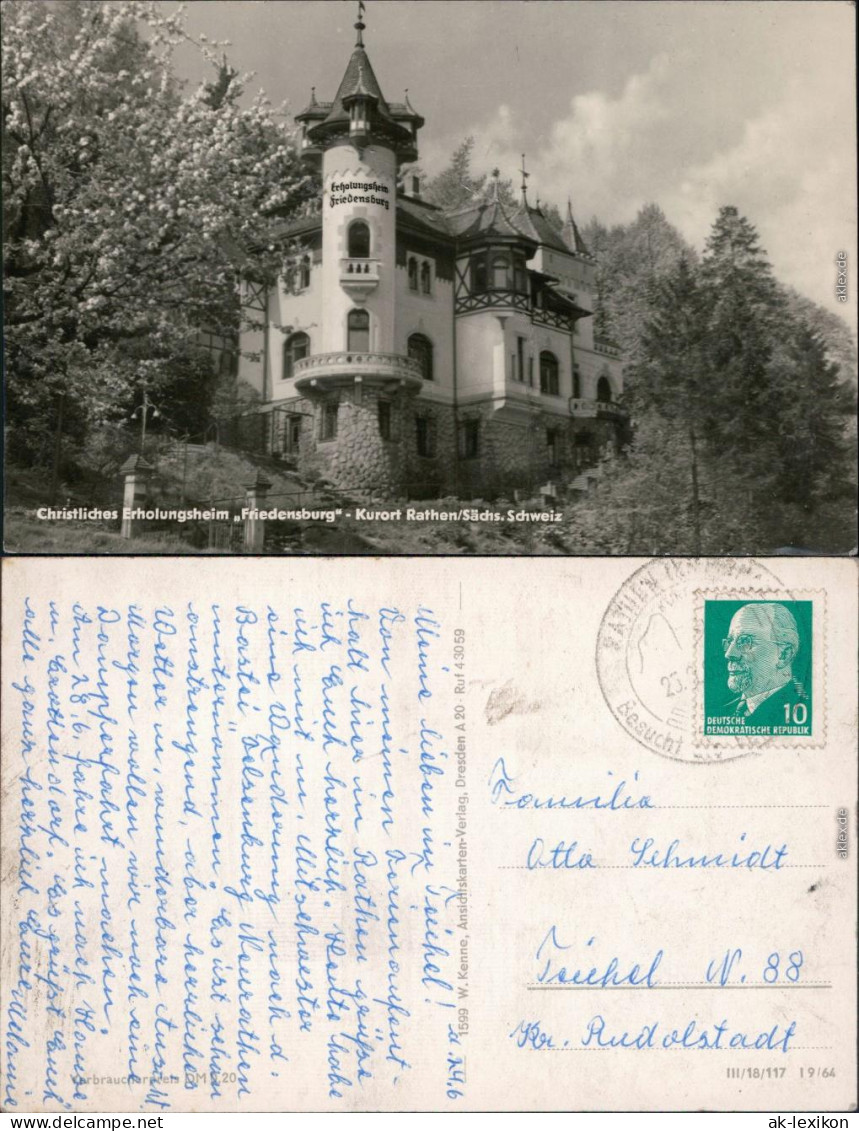 Erholungsheim
Friedensburg
Christliches Erholungsheim „Friedensburg" - Kurort Rathen/Sächs. Schweiz
aklex.de
Meine lieben in Teichel! d. 24.6
Von meinen Ferienaufent-
halt hier in Rathen grüße
ich Euch herzlich. Heute habe
ich mit m. Mitschwester
eine Wanderung nach d.
Bastei Felsenburg Neurathen
unternommen. Es ist schön
anstrengend, aber herrliches
Wetter u. wunderbare Aussicht.
Morgen wollen wir noch eine
Dampferfahrt machen.
Am 28.6. fahre ich nach Hause
n. Es grüßt Euch
alle ganz herzlich Eure
1599 W. Kenne, Ansichtskarten-Verlag, Dresden A 20 · Ruf 43059
Verbraucherpreis DM 0.20
RATHEN
Besucht
10
DEUTSCHE
DEMOKRATISCHE REPUBLIK
Familie
Otto Schmidt
Teichel N. 88
Kr. Rudolstadt
III/18/117 I 9/64
aklex.de
ak-lexikon